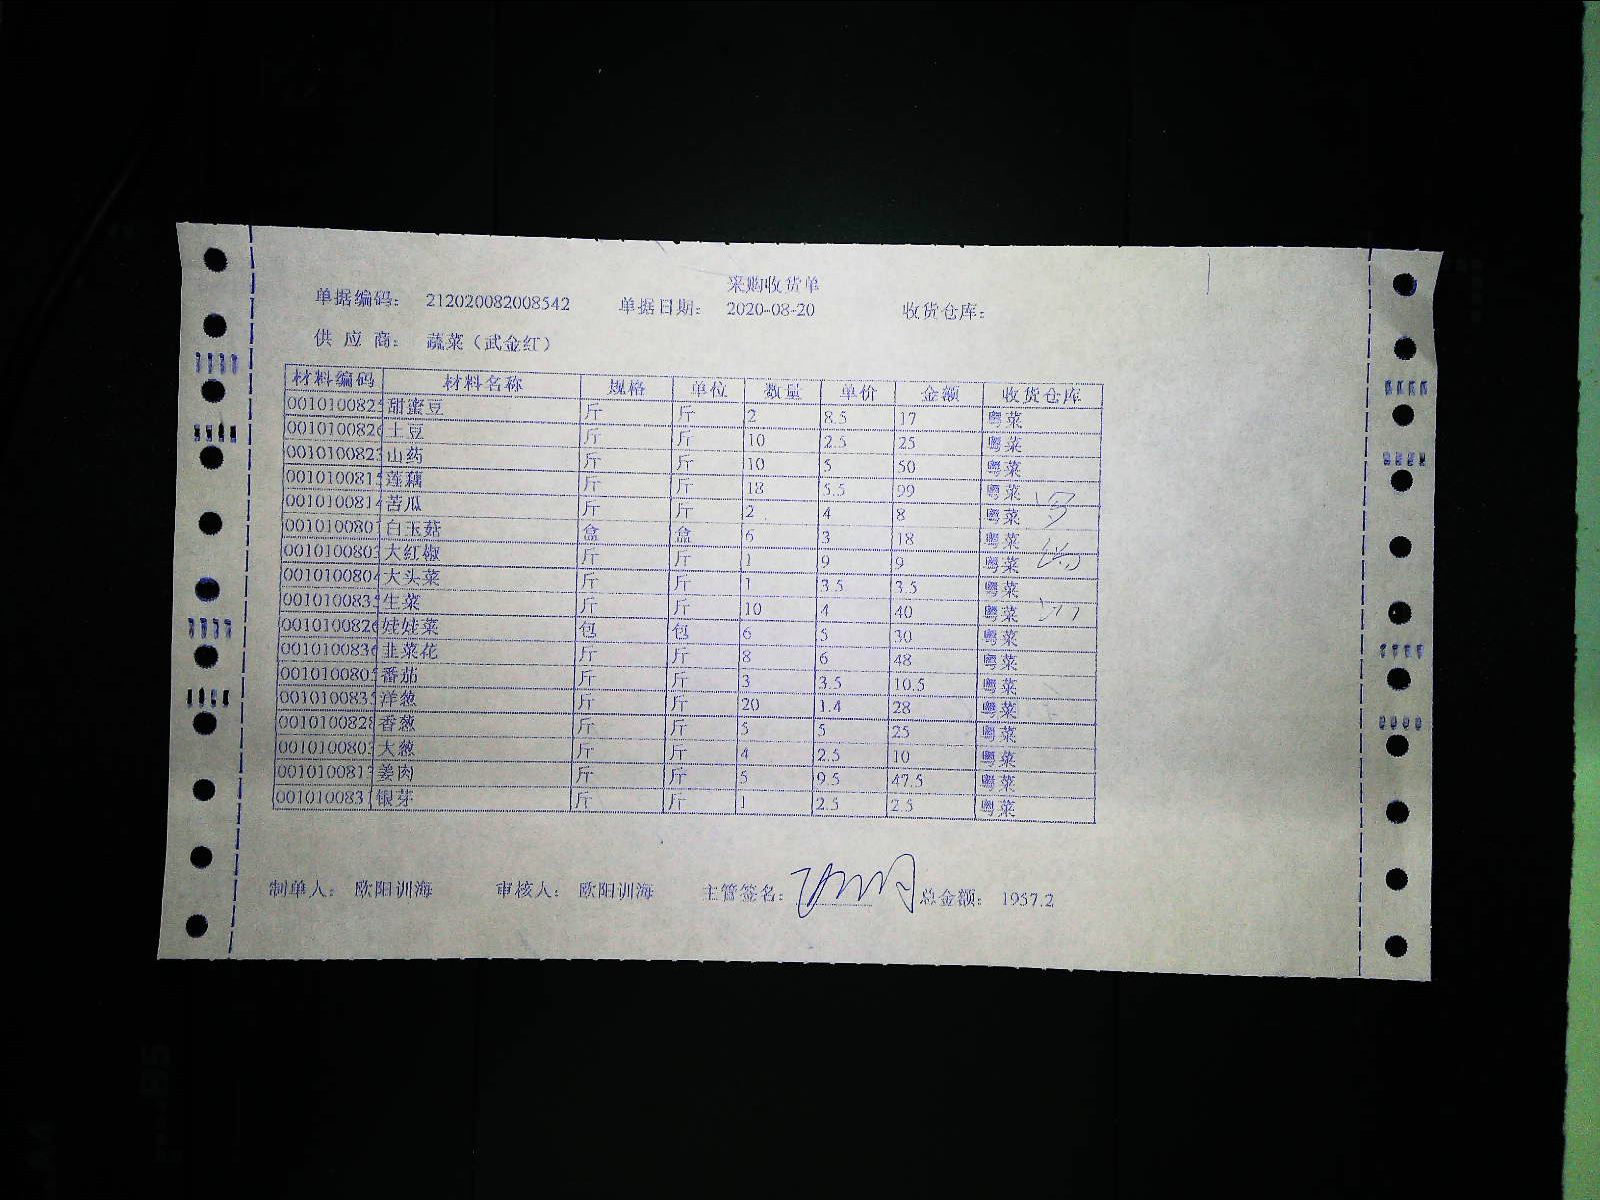 采购收货单
单据编码： 212020082008542 单据日期： 2020-08-20 收货仓库：
供 应 商： 蔬菜（武金红）
材料编码 材料名称 规格 单位 数量 单价 金额 收货仓库
001010082 甜蜜豆 斤 斤 2 8.5 17 粤菜
001010082 土豆 斤 斤 10 2.5 25 粤菜
001010082 山药 斤 斤 10 5 50 粤菜
001010081 莲藕 斤 斤 18 5.5 99 粤菜
001010081 苦瓜 斤 斤 2 4 8 粤菜
001010080 白玉菇 盒 盒 6 3 18 粤菜
001010080 大红椒 斤 斤 1 9 9 粤菜
001010080 大头菜 斤 斤 1 3.5 3.5 粤菜
001010083 生菜 斤 斤 10 4 40 粤菜
001010082 娃娃菜 包 包 6 5 30 粤菜
001010083 韭菜花 斤 斤 8 6 48 粤菜
001010080 番茄 斤 斤 3 3.5 10.5 粤菜
001010083 洋葱 斤 斤 20 1.4 28 粤菜
001010082 香葱 斤 斤 5 5 25 粤菜
001010080 大葱 斤 斤 4 2.5 10 粤菜
001010081 姜肉 斤 斤 5 9.5 47.5 粤菜
001010083 银芽 斤 斤 1 2.5 2.5 粤菜
制单人： 欧阳训海 审核人： 欧阳训海 主管签名： 总金额： 1957.2